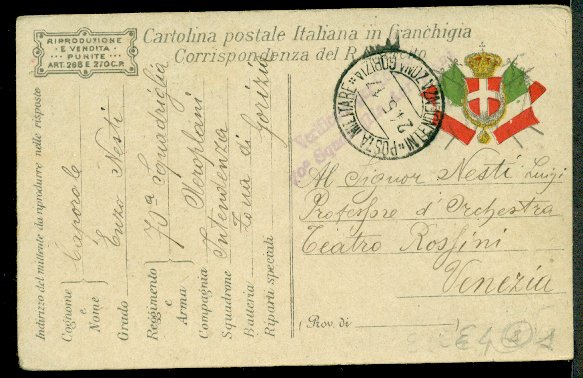 RIPRODUZIONE
E VENDITA
PUNITE
ART. 268 E 270 C.P.
Cartolina postale Italiana in franchigia
Corrispondenza del R.
INTENDENZA ZONA GORIZIA * POSTA MILITARE *
24 5 17
70a Squadriglia
Indirizzo del mittente da riprodurre nelle risposte
Cognome
e
Nome
Caporale
Enzo Nesti
Grado
Reggimento
e
Arma
70a Squadriglia
Compagnia
Aeroplani
Squadrone
Intendenza
Batteria
Zona di Gorizia
Riparti speciali
Al Signor Nesti Luigi
Professore d'Orchestra
Teatro Rossini
Venezia
Prov. di